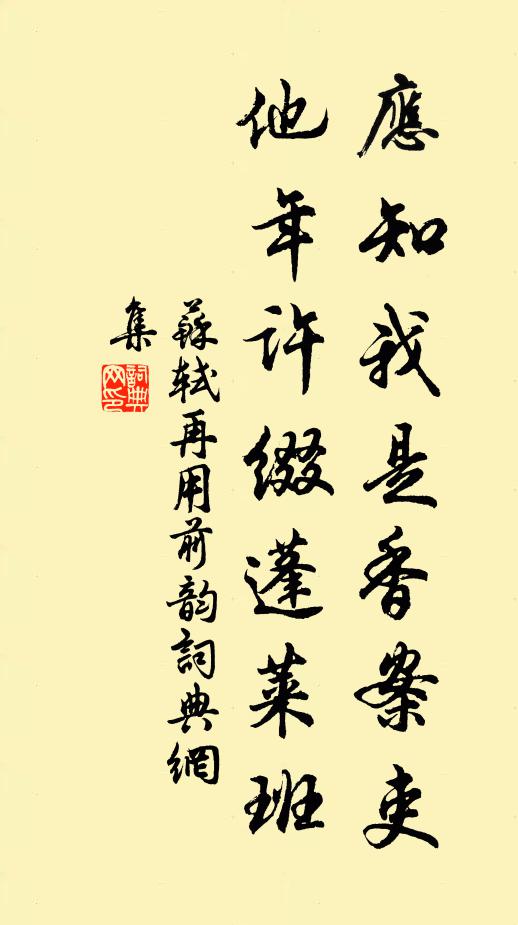 應知我是香案吏
他年許綴蓬萊班
蘇軾再用前韵詞典網
集
詞典網印